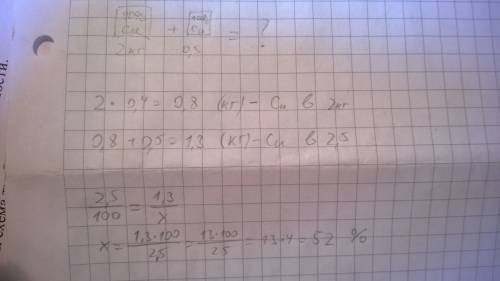 Cu + Cu = ?
2кг 0,5
2 · 0,4 = 0,8 (кг) - Cu в 2кг
0,8 + 0,5 = 1,3 (кг) - Cu в 2,5
2,5/100 = 1,3/x
x = 1,3·100/2,5 = 13·100/25 = 13·4 = 52 %